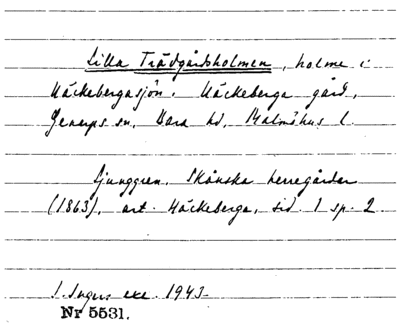 Lilla Trädgårdsholmen, holme i
Häckebergasjön. Häckeberga gård,
Genarps sn, Bara hd, Malmöhus l.
Ljunggren, Skånska herregårdar
(1863), art. Häckeberga, sid. 1 sp. 2
I. Ingers exc. 1943.
Nr 5531.